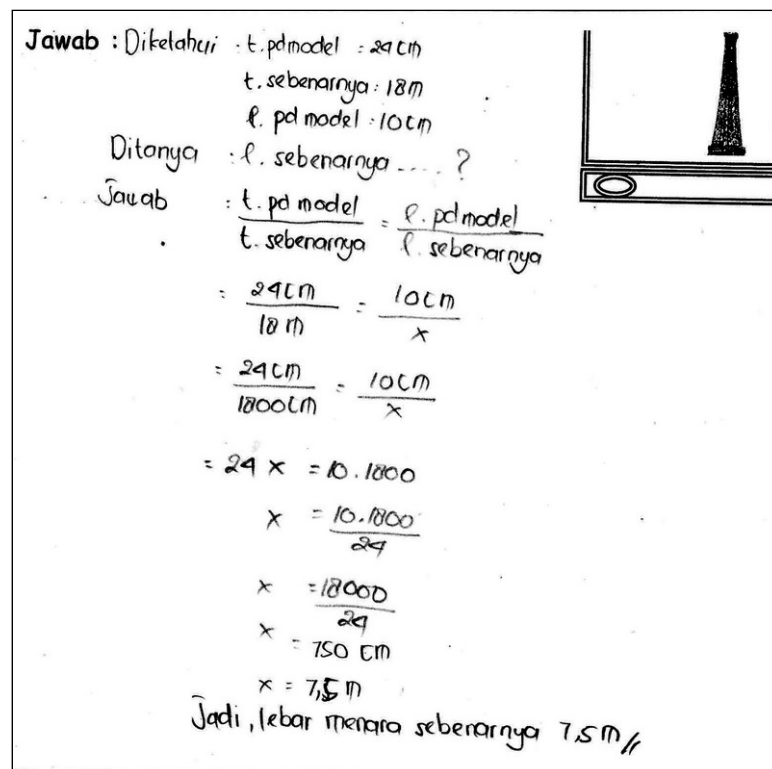 Jawab : Diketahui : t.pd model : 24 cm
t. sebenarnya : 18 m
l. pd model : 10 cm
Ditanya : l. sebenarnya .... ?
Jawab : t. pd model / t. sebenarnya = l. pd model / l. sebenarnya
= 24 cm / 18 m = 10 cm / x
= 24 cm / 1800 cm = 10 cm / x
= 24 x = 10 . 1800
x = 10 . 1800 / 24
x = 18000 / 24
x = 750 cm
x = 7,5 m
Jadi, lebar menara sebenarnya 7,5 m //